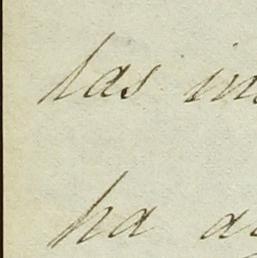 las in
ha a